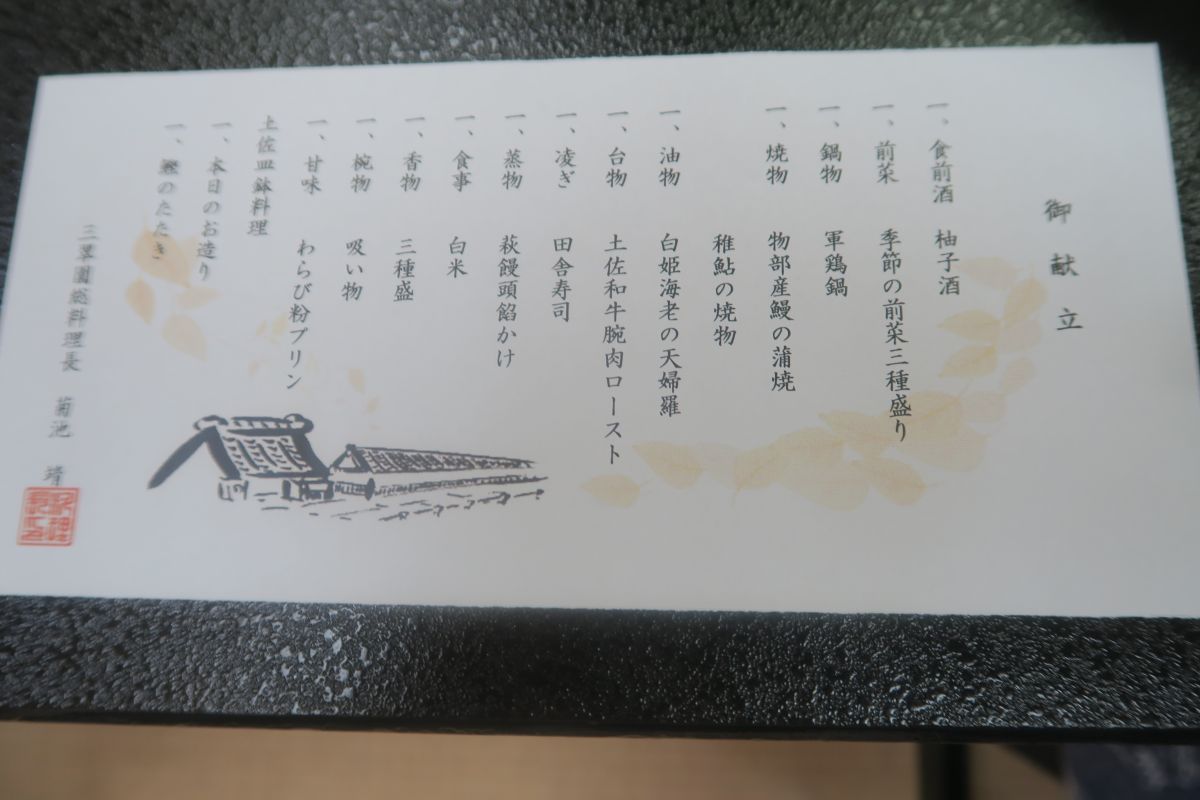 御献立
一、食前酒 柚子酒
一、前菜 季節の前菜三種盛り
一、鍋物 軍鶏鍋
一、焼物 物部産鰻の蒲焼
稚鮎の焼物
一、油物 白姫海老の天婦羅
一、台物 土佐和牛腕肉ロースト
一、凌ぎ 田舎寿司
一、蒸物 萩饅頭餡かけ
一、食事 白米
一、香物 三種盛
一、椀物 吸い物
一、甘味 わらび粉プリン
土佐皿鉢料理
一、本日のお造り
一、鰹のたたき
三翠園総料理長 菊池 靖